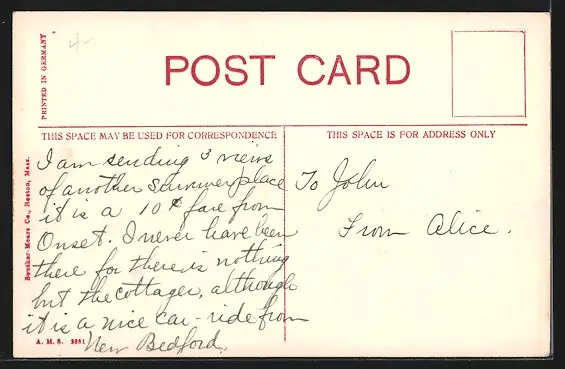 PRINTED IN GERMANY
4-
POST CARD
THIS SPACE MAY BE USED FOR CORRESPONDENCE
THIS SPACE IS FOR ADDRESS ONLY
I am sending 3 views
of another summer place
it is a 10¢ fare from
Onset. I never have been
there for there is nothing
but the cottages, although
it is a nice car-ride from
New Bedford.
To John
From Alice.
Co., Boston, Mass.
A. M. S.